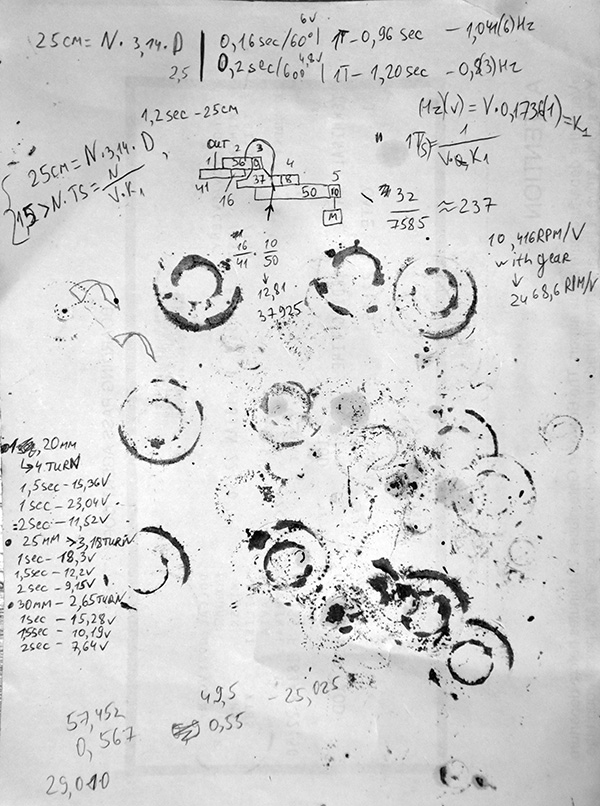 25CM = N·3,14·D
2,5
6V
0,16sec/60° | 1T-0,96 sec - 1,041(6)Hz
4,8V
0,2sec/60° | 1T - 1,20sec - 0,8(3)Hz
1,2sec - 25cm
(Hz)(v) = V·0,1736(1) = K1
25CM = N·3,14·D,
1,5 > N·TS = N/V·K1
OUT 2 3
1 56 9 4
41 37 18 5
16 50 10
M
32/7585 ≈ 237
16/41 · 10/50
12,81
37925
10,416RPM/V
with gear
2468,6 RPM/V
20MM
4 TURN
1,5sec - 15,36V
1sec - 23,04V
2sec - 11,52V
25MM > 3,18TURN
1sec - 18,3V
1,5sec - 12,2V
2sec - 9,15V
30MM - 2,65TURN
1sec - 15,28V
15sec - 10,19V
2sec - 7,64V
49,5 - 25,025
57,452
0,55
0,567
29,010